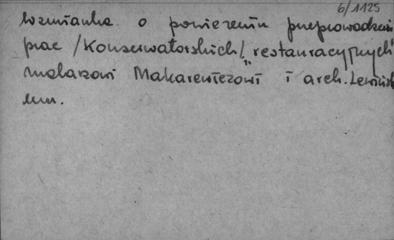 6/1125
Wzmianka o powierzeniu przeprowadzeni
prac /konserwatorskich/ "restauracyjnych"
malarzowi Makarewiczowi i arch.
em.